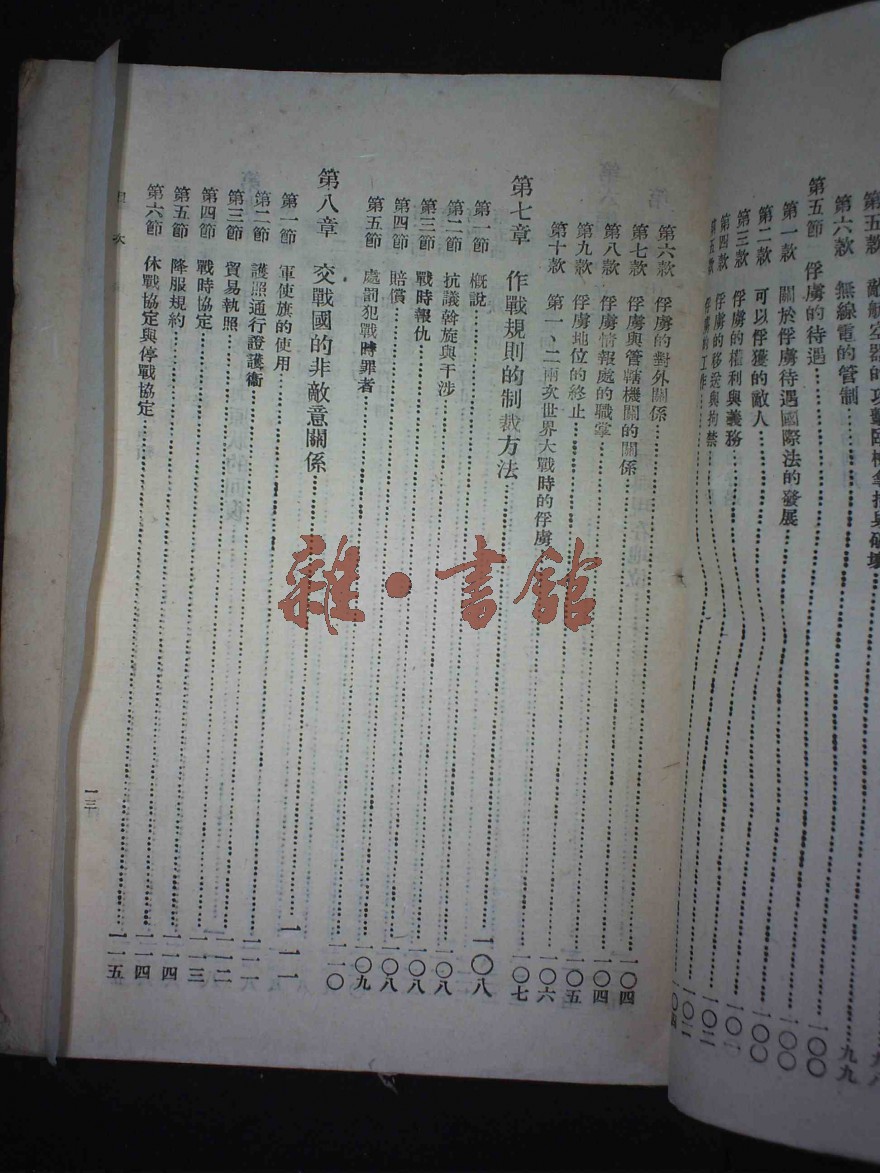 第五款 敵航空器的攻擊臨檢拿捕與破壞……九八
第六款 無線電的管制……九九
第五節 俘虜的待遇……一〇〇
第一款 關於俘虜待遇國際法的發展……一〇〇
第二款 可以俘獲的敵人……一〇〇
第三款 俘虜的權利與義務……一〇一
第四款 俘虜的移送與拘禁……一〇二
第五款 俘虜的工作……
第六款 俘虜的對外關係……一〇四
第七款 俘虜與管轄機關的關係……一〇四
第八款 俘虜情報處的職掌……一〇五
第九款 俘虜地位的終止……一〇六
第十款 第一、二兩次世界大戰時的俘虜……一〇七
第七章 作戰規則的制裁方法……一〇八
第一節 概說……一〇八
第二節 抗議斡旋與干涉……一〇八
第三節 戰時報仇……一〇八
第四節 賠償……一〇九
第五節 處罰犯戰時罪者……一一〇
第八章 交戰國的非敵意關係……一一一
第一節 軍使旗的使用……一一一
第二節 護照通行證護衛……一一二
第三節 貿易執照……一一三
第四節 戰時協定……一一四
第五節 降服規約……一一四
第六節 休戰協定與停戰協定……一一五
目次
一三
雜·書館